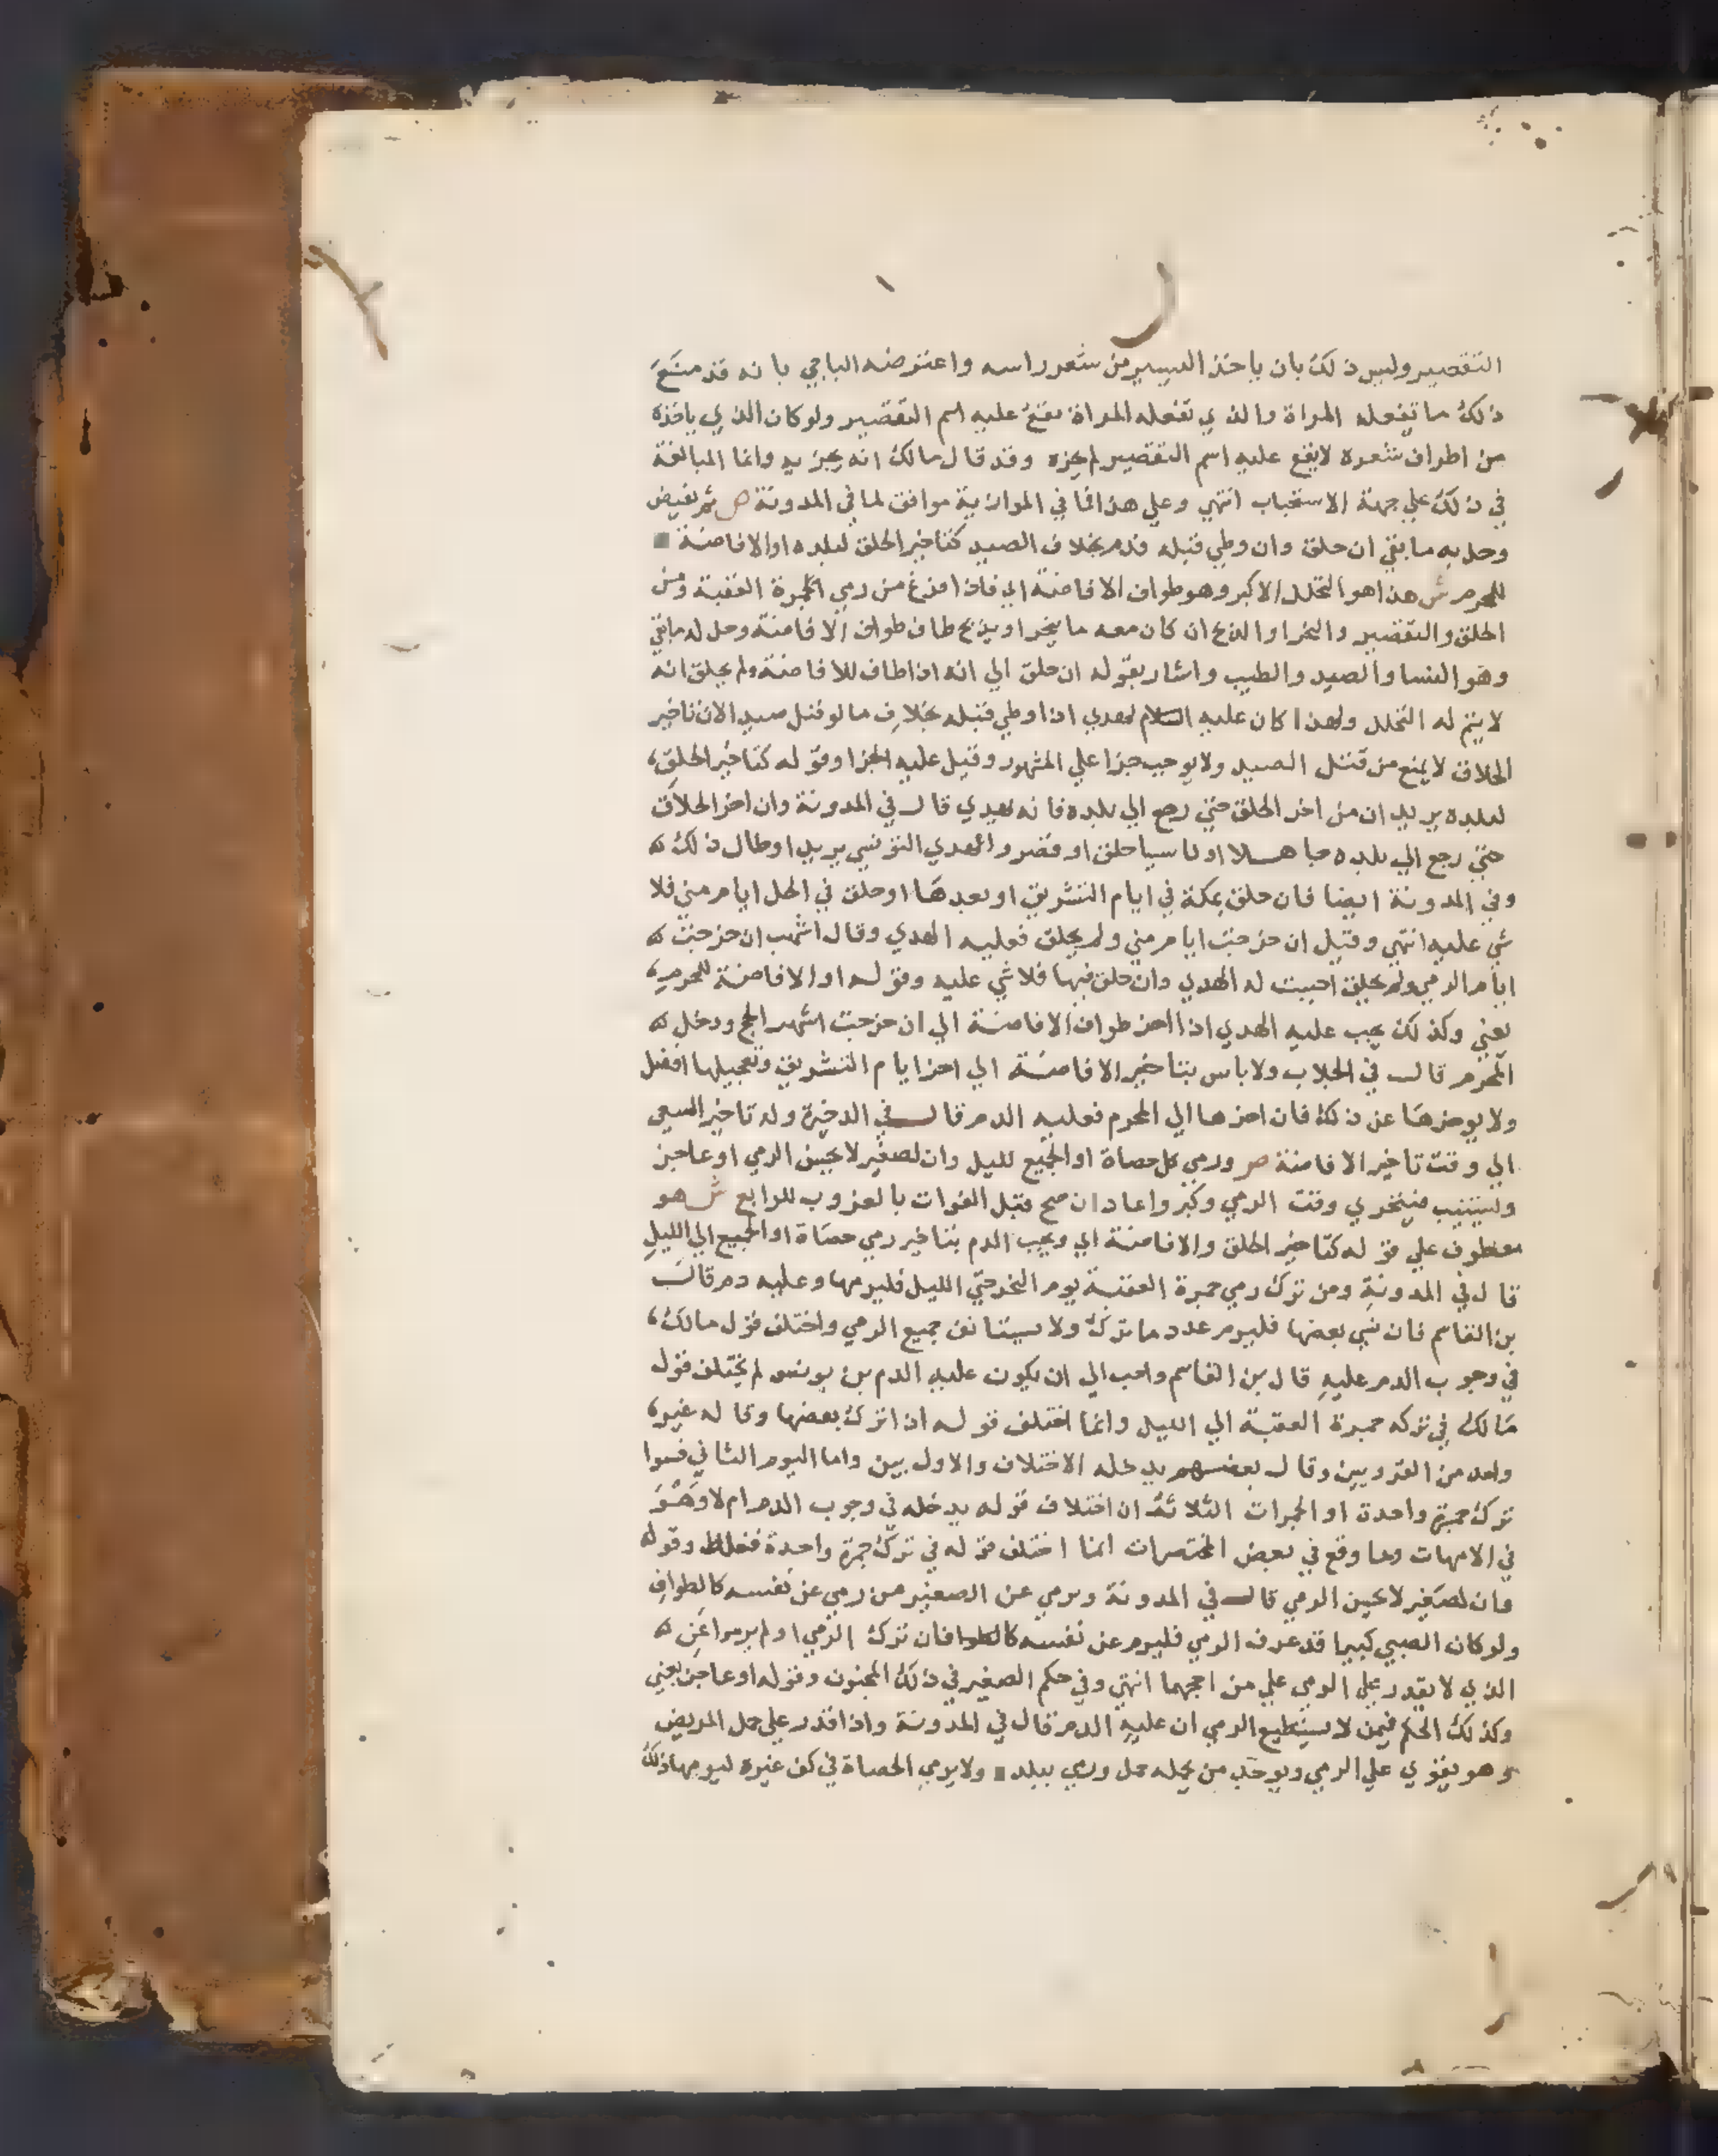 التقصير وليس ذلك بان ياخذ اليسير من شعر راسه واعترضه الباجي بانه قد منع
ذلك ما تفعله المراة والذي تفعله المراة يقع عليه اسم التقصير ولو كان الذي ياخذه
من اطراف شعره لا يقع عليه اسم التقصير لم يجزه وقد قال مالك انه يجزيه وانما المبالغة
في ذلك على جهة الاستحباب انتهي وعلي هذا فما في الموازية موافق لما في المدونة ص ثم يفيض
وحل به ما بقي ان حلق وان وطي قبله فدم بخلاف الصيد كتاخير الحلق لبلده او الافاضة
للمحرم ش هذا هو التحلل الاكبر وهو طواف الافاضة اي فاذا فرغ من رمي الجمرة العقبة ومن
الحلق والتقصير والنحر او الذبح ان كان معه ما ينحر او يذبح طاف طواف الافاضة وحل له ما بقي
وهو النسا والصيد والطيب واشار بقوله ان حلق الي انه اذا طاف للافاضة ولم يحلق انه
لا يتم له التحلل ولهذا كان عليه السلام لهدي اذا وطي قبله بخلاف ما لو قتل صيد الان تاخير
الحلاق لا يمنع من قتل الصيد ولا يوجب جزا علي المشهور وقيل عليه الجزا وقوله كتاخير الحلق
لبلده يريد ان من اخر الحلق حتي رجع الي بلده فانه يهدي قال في المدونة وان اخر الحلاق
حتي رجع الي بلده جاهلا او ناسيا حلق او قصر واهدي التونسي يريد او طال ذلك
وفي المدونة ايضا فان حلق بمكة في ايام التشريق او بعدها او حلق في الحل ايام مني فلا
شي عليه انتهي وقيل ان خرجت ايام مني ولم يحلق فعليه الهدي وقال اشهب ان خرجت
ايام الرمي ولم يحلق احببت له الهدي وان حلق فيها فلا شي عليه وقوله او الافاضة للمحرم
يعني وكذلك يجب عليه الهدي اذا اخر طواف الافاضة الي ان خرجت اشهر الحج ودخل
المحرم قال في الجلاب ولا باس بتاخير الافاضة الي اخر ايام التشريق وتعجيلها افضل
ولا يوخرها عن ذلك فان اخرها الي المحرم فعليه الدم قال في الذخيرة وله تاخير السعي
الي وقت تاخير الافاضة ص ورمي كل حصاة او الجميع لليل وان لصغير لا يحسن الرمي او عاجز
ويستنيب فيتحري وقت الرمي وكبر واعاد ان صح قبل الفوات بالغروب للرابع ش هو
معطوف علي قوله كتاخير الحلق والافاضة اي ويجب الدم بتاخير رمي حصاة او الجميع الي الليل
قال في المدونة ومن ترك رمي جمرة العقبة يوم النحر حتي الليل فليرمها وعليه دم قال
بن القاسم فان نسي بعضها فليرم عدد ما ترك ولا يستانف جميع الرمي واختلف قول مالك
في وجوب الدم عليه قال بن القاسم واحب الي ان يكون عليه الدم بن يونس لم يختلف قول
مالك في تركه جمرة العقبة الي الليل وانما اختلف قوله اذا ترك بعضها وقاله غير
واحد من القرويين وقال بعضهم يدخله الاختلاف والاول بين واما اليوم الثاني فسوا
ترك جمرة واحدة او الجمرات الثلاثة ان اختلاف قوله يدخله في وجوب الدم ام لا وهو
في الامهات وما وقع في بعض المختصرات انما اختلف قوله في ترك جمرة واحدة فغلط وقوله
وان لصغير لا يحسن الرمي قال في المدونة ويرمي عن الصغير من رمي عن نفسه كالطواف
ولو كان الصبي كبيرا قد عرف الرمي فليرم عن نفسه كالطواف فان ترك الرمي او لم يرموا عن
الذي لا يقدر علي الرمي علي من احجهما انتهي وفي حكم الصغير في ذلك المجنون وقوله او عاجز يعني
وكذلك الحكم فيمن لا يستطيع الرمي ان عليه الدم قال في المدونة واذا قدر علي حمل المريض
وهو يقوي علي الرمي ويوجد من يحمله حمل ورمي بيده ولا يرمي الحصاة في كف غيره ليرميها ذلك